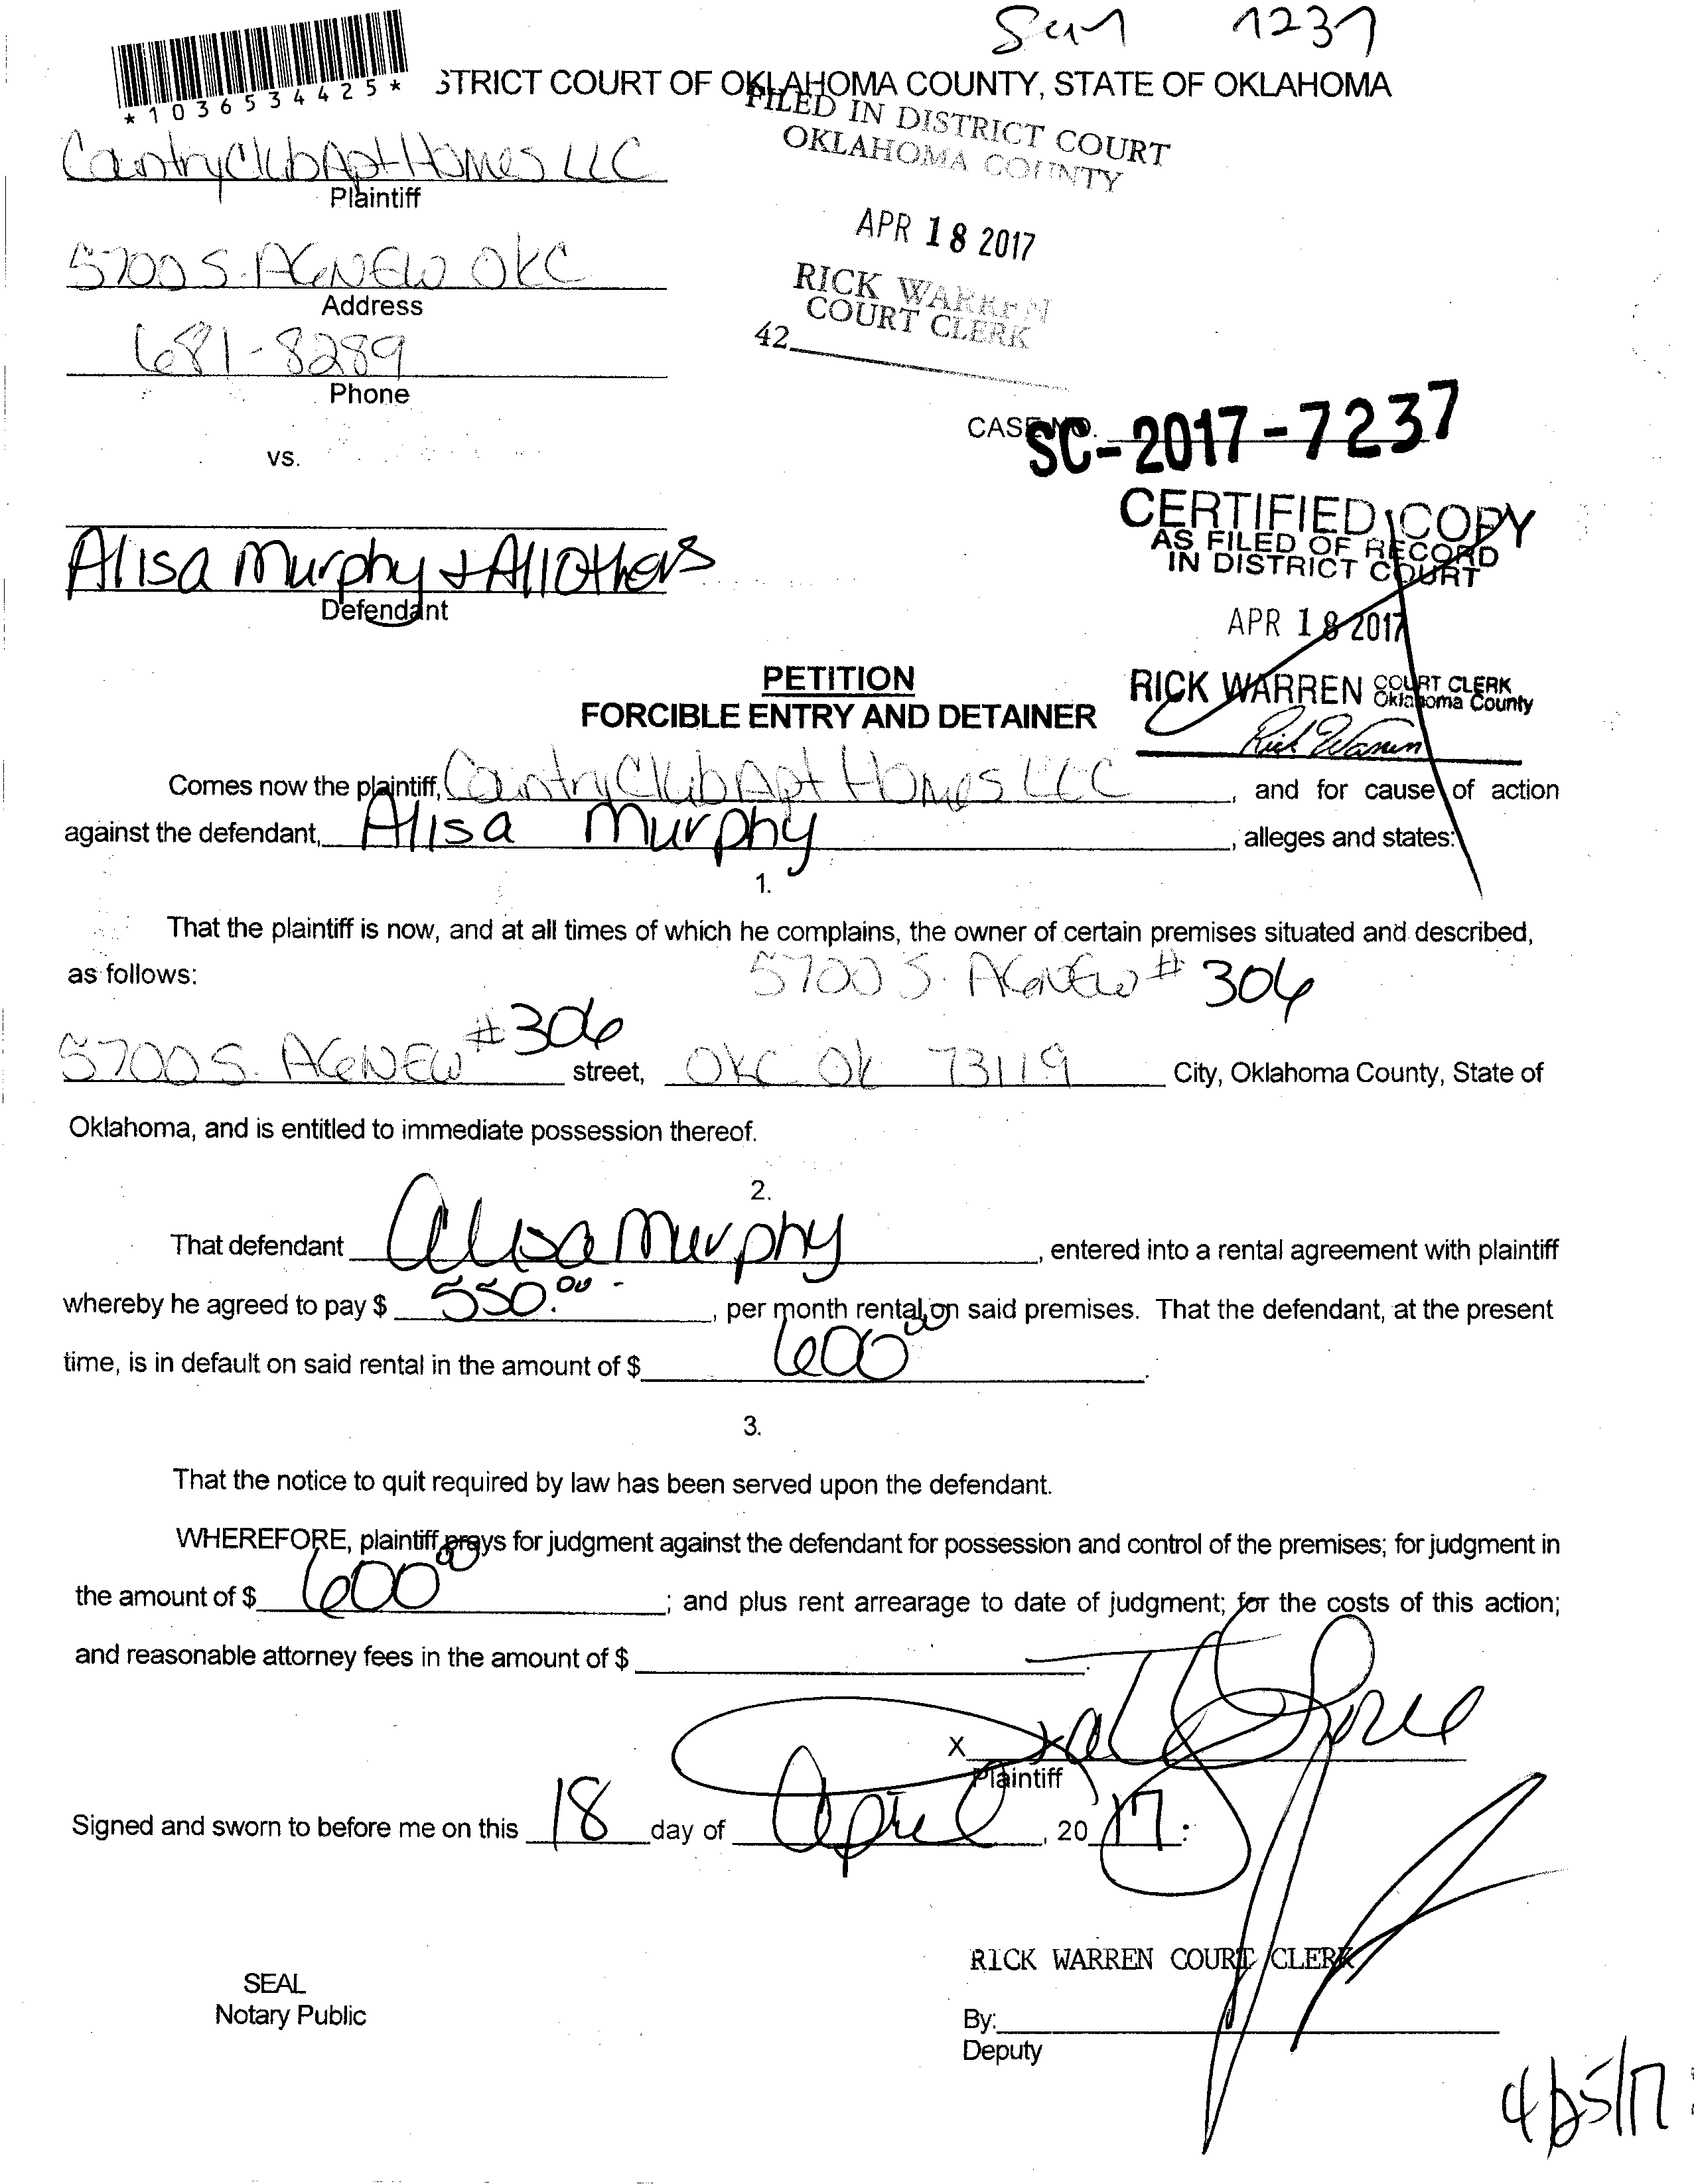 1237
*1036534425*
STRICT COURT OF OKLAHOMA COUNTY, STATE OF OKLAHOMA
FILED IN DISTRICT COURT
OKLAHOMA COUNTY
Country Club Apt Homes LLC
Plaintiff
APR 18 2017
5700 S. AGNEW OKC
Address
RICK WARREN
COURT CLERK
42
681-8289
Phone
CASE NO. SC-2017-7237
vs.
CERTIFIED COPY
AS FILED OF RECORD
IN DISTRICT COURT
Alisa Murphy + All Others
Defendant
APR 18 2017
PETITION
RICK WARREN COURT CLERK
Oklahoma County
FORCIBLE ENTRY AND DETAINER
Rick Warren
Comes now the plaintiff, Country Club Apt Homes LLC, and for cause of action
against the defendant, Alisa Murphy, alleges and states:
1.
That the plaintiff is now, and at all times of which he complains, the owner of certain premises situated and described,
as follows: 5700 S. AGNEW # 306
5700 S. AGNEW #306 street, OKC OK 73119 City, Oklahoma County, State of
Oklahoma, and is entitled to immediate possession thereof.
2.
That defendant Alisa Murphy, entered into a rental agreement with plaintiff
whereby he agreed to pay $ 550.00, per month rental, on said premises. That the defendant, at the present
time, is in default on said rental in the amount of $ 600 00.
3.
That the notice to quit required by law has been served upon the defendant.
WHEREFORE, plaintiff prays for judgment against the defendant for possession and control of the premises; for judgment in
the amount of $ 600 00; and plus rent arrearage to date of judgment; for the costs of this action;
and reasonable attorney fees in the amount of $ .
X
Plaintiff
Signed and sworn to before me on this 18 day of April, 20 17.
RICK WARREN COURT CLERK
SEAL
Notary Public
By:
Deputy
4/25/17